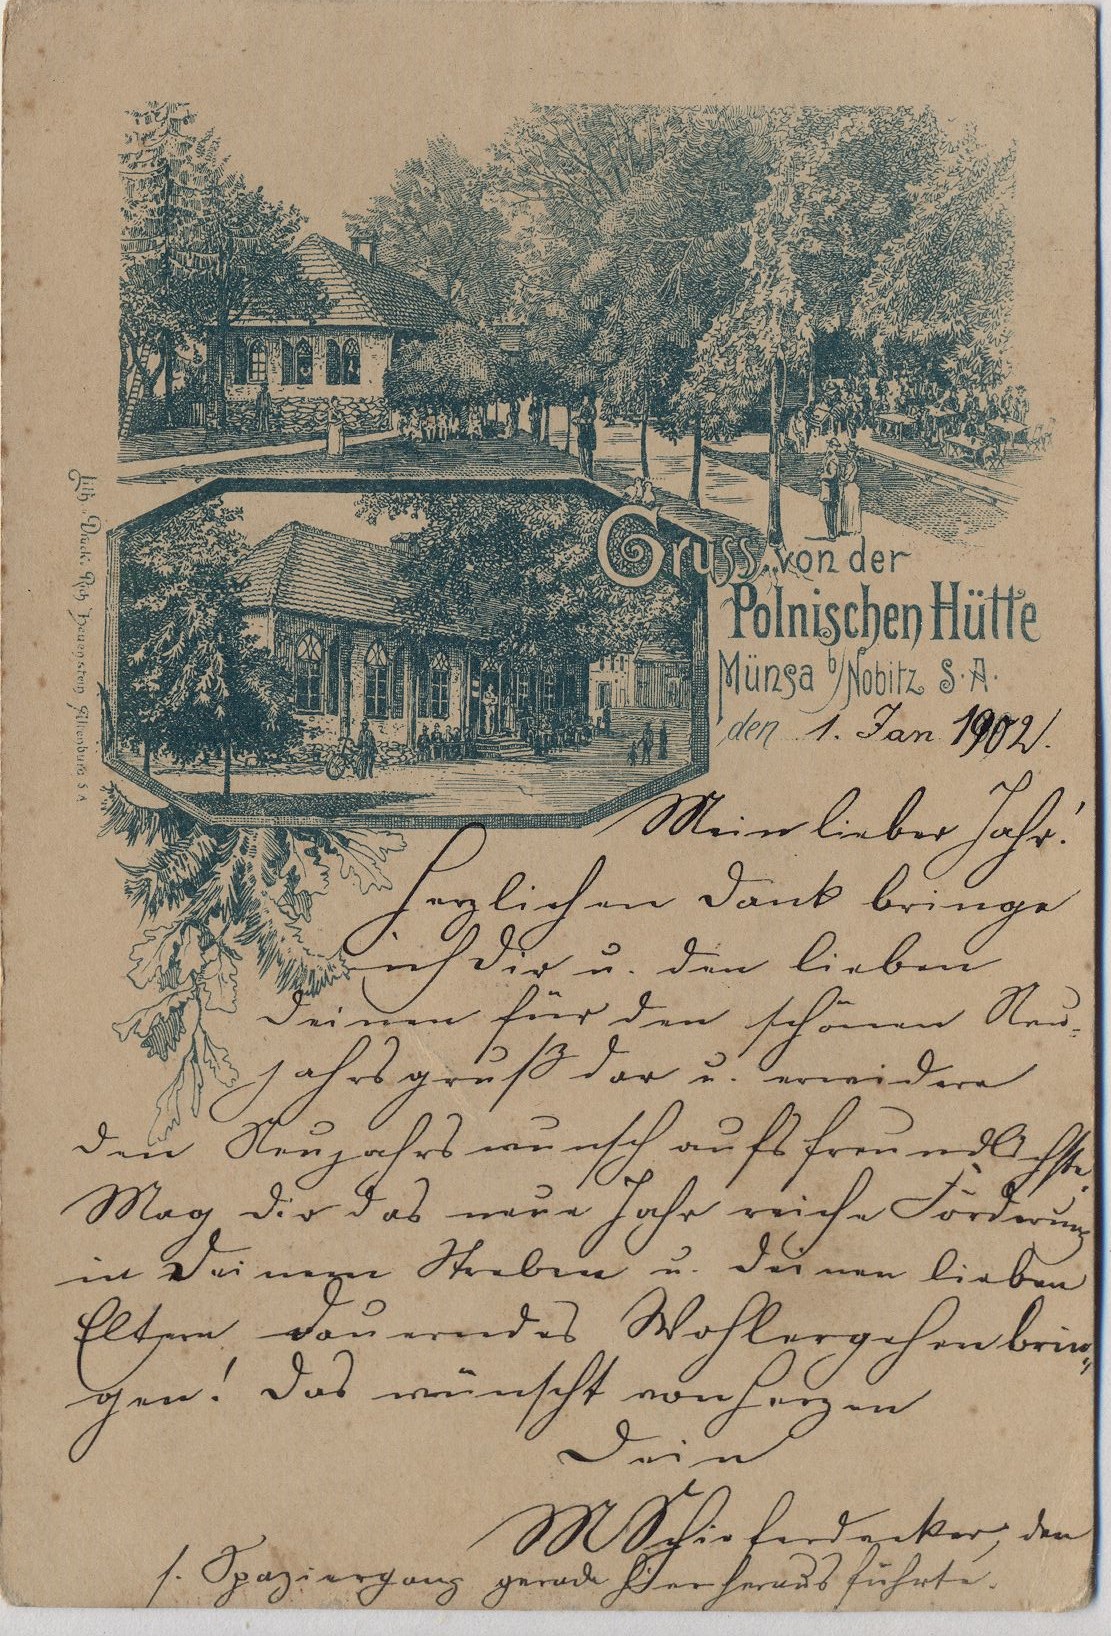 Gruss von der
Polnischen Hütte
Münsa b/Nobitz S.-A.
den 1. Jan 1902.
Lith. Druck. Rob. Heuenstein Altenburg S A
Mein lieber Jahr!
Herzlichen Dank bringe
ich Dir u. den lieben
Deinen für den schönen Neu-
jahrsgruß dar u. erwidere
den Neujahrswunsch aufs freundlichste.
Mag dir das neue Jahr reiche Förderung
in Deinem Streben u. Deinen lieben
Eltern dauerndes Wohlergehen brin-
gen! Das wünscht von Herzen
Dein
M Schieferdecker, den
s. Spaziergang gerade hier heraus führte.